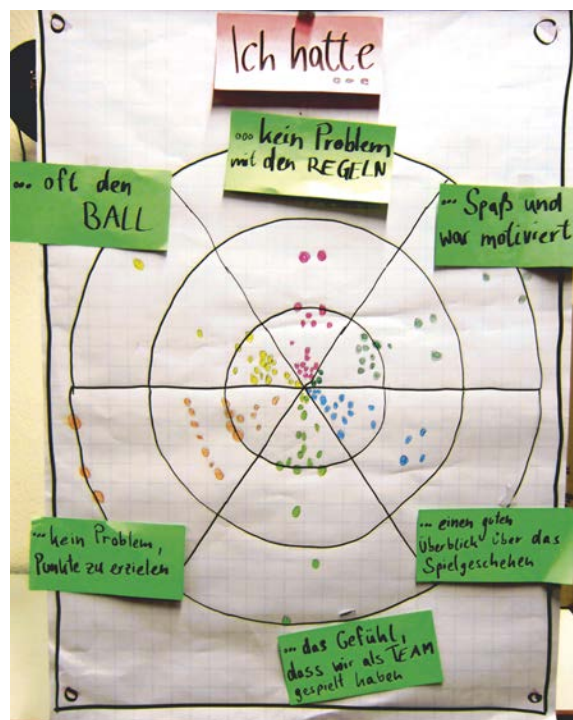 Ich hatte
...
... kein Problem
mit den REGELN
... oft den
BALL
... Spaß und
war motiviert
... kein Problem,
Punkte zu erzielen
... einen guten
Überblick über das
Spielgeschehen
... das Gefühl,
dass wir als TEAM
gespielt haben